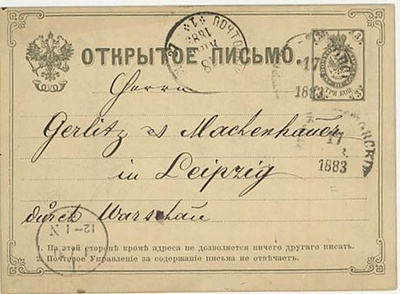 ОТКРЫТОЕ ПИСЬМО.
ТРИ КОП.
17
1883
Herrn
Gerlitz & Machenhauer
in Leipzig
17
1883
durch Warschau
12-1 N
1. На этой сторонѣ кромѣ адреса не дозволяется ничего другаго писать.
2. Почтовое Управленіе за содержаніе письма не отвѣчаетъ.